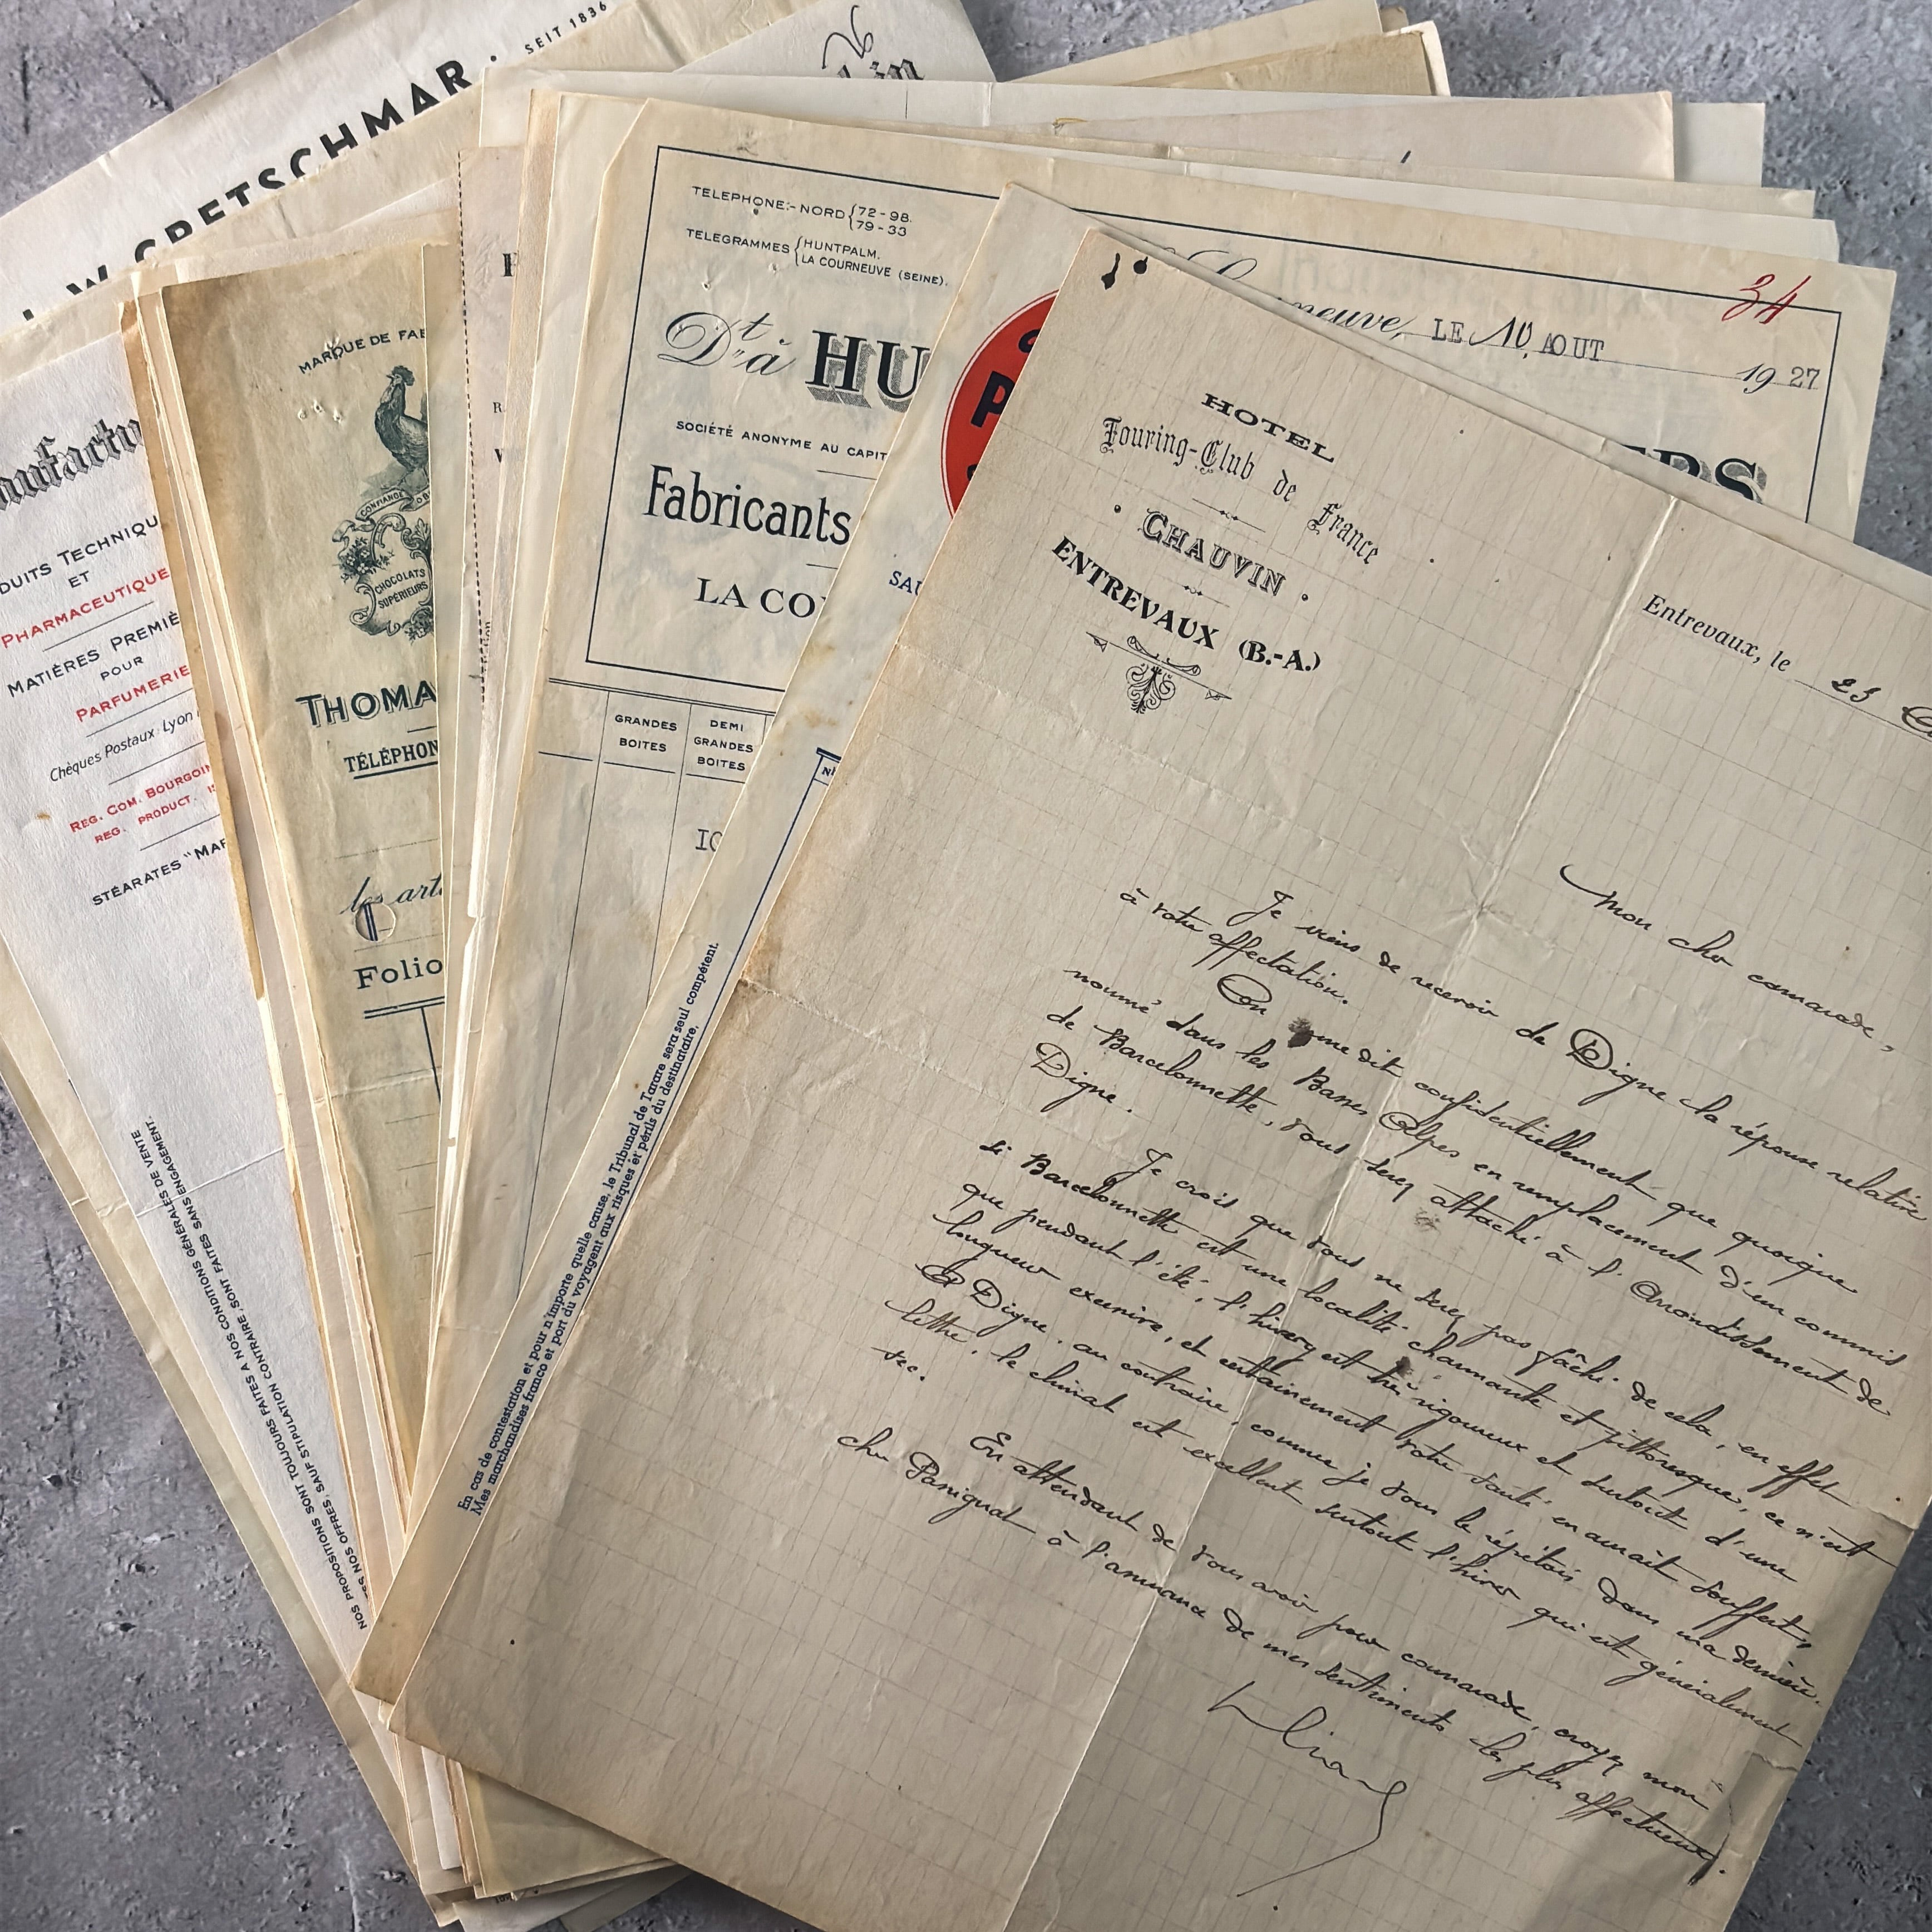 SEIT 1836
W. GRETSCHMAR
TELEPHONE:- NORD { 72-98.
79-33
TELEGRAMMES { HUNTPALM.
LA COURNEUVE (SEINE).
34
LE 10 AOUT
19 27
Dt à HU
SOCIÉTÉ ANONYME AU CAPIT
Fabricants
LA CO
GRANDES
BOITES
DEMI
GRANDES
BOITES
MARQUE DE FAB
CONFIANCE
CHOCOLATS
SUPÉRIEURS
THOMA
TÉLÉPHON
les art
Folio
nufactu
DUITS TECHNIQU
ET
PHARMACEUTIQUE
MATIÈRES PREMIÈ
POUR
PARFUMERIE
Chèques Postaux Lyon
REG. COM. BOURGOIN
REG. PRODUCT.
STÉARATES "MAR
NOS PROPOSITIONS SONT TOUJOURS FAITES A NOS CONDITIONS GÉNÉRALES DE VENTE
NOS OFFRES, SAUF STIPULATION CONTRAIRE, SONT FAITES SANS ENGAGEMENT.
En cas de contestation et pour n'importe quelle cause, le Tribunal de Tarare sera seul compétent.
Mes marchandises franco et port dû voyagent aux risques et périls du destinataire.
HOTEL
Touring-Club de France
CHAUVIN
ENTREVAUX (B.-A.)
Entrevaux, le 23
Mon cher camarade,
Je viens de recevoir de Digne la réponse relative
à votre affectation.
On me dit confidentiellement que quoique
nommé dans les Basses Alpes en remplacement d'un commis
de Barcelonnette, vous serez attaché à l'Arrondissement de
Digne.
Je crois que vous ne serez pas fâché de cela, en effet
si Barcelonnette est une localité charmante et pittoresque, ce n'est
que pendant l'été, l'hiver est très rigoureux et surtout d'une
longueur excessive, et certainement votre santé en aurait souffert,
A Digne, au contraire, comme je vous le répétais dans ma dernière
lettre, le climat est excellent surtout l'hiver qui est généralement
sec.
En attendant de vous avoir pour camarade, croyez mon
cher Panignat à l'assurance de mes sentiments les plus affectueux.